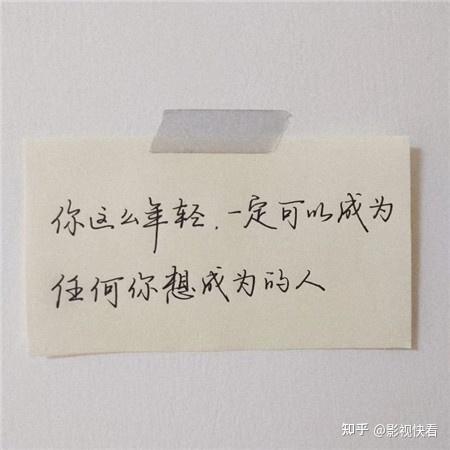 你这么年轻，一定可以成为
任何你想成为的人
知乎 @影视快看